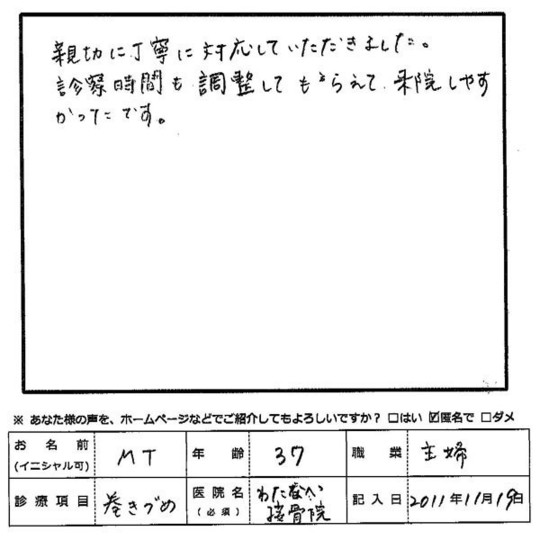 親切に丁寧に対応していただきました。
診察時間も調整してもらえて、来院しやす
かったです。
※ あなた様の声を、ホームページなどでご紹介してもよろしいですか? □はい ☑匿名で □ダメ
お名前 (イニシャル可) MT 年齢 37 職業 主婦
診療項目 巻きづめ 医院名 (必須) わたなべ接骨院 記入日 2011年11月19日